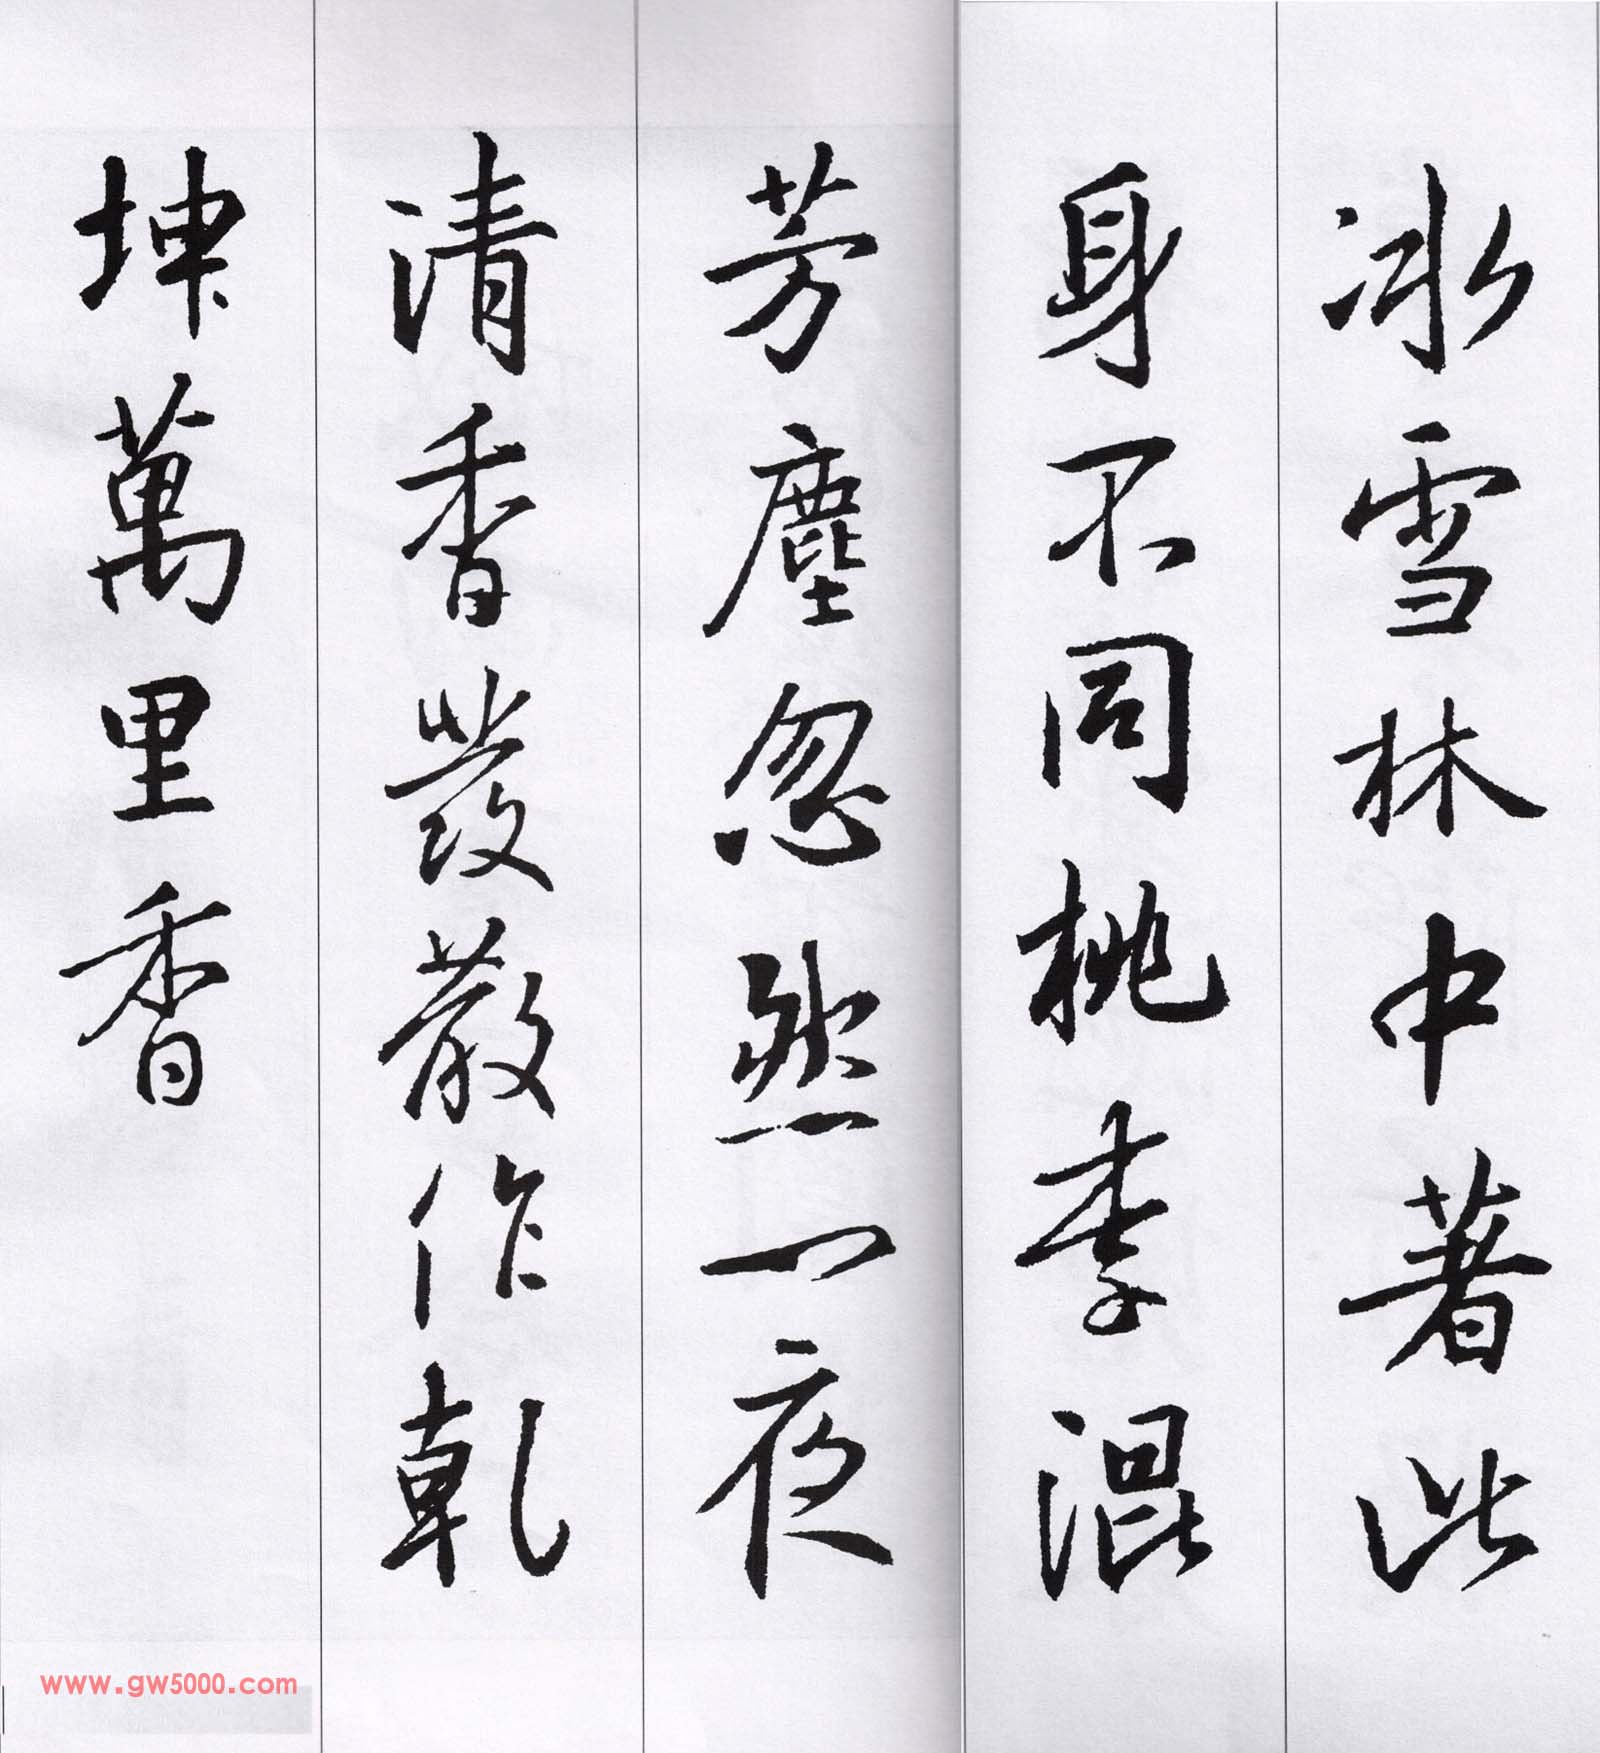 冰雪林中著此
身不同桃李混
芳塵忽然一夜
清香發散作乾
坤萬里香
www.gw5000.com